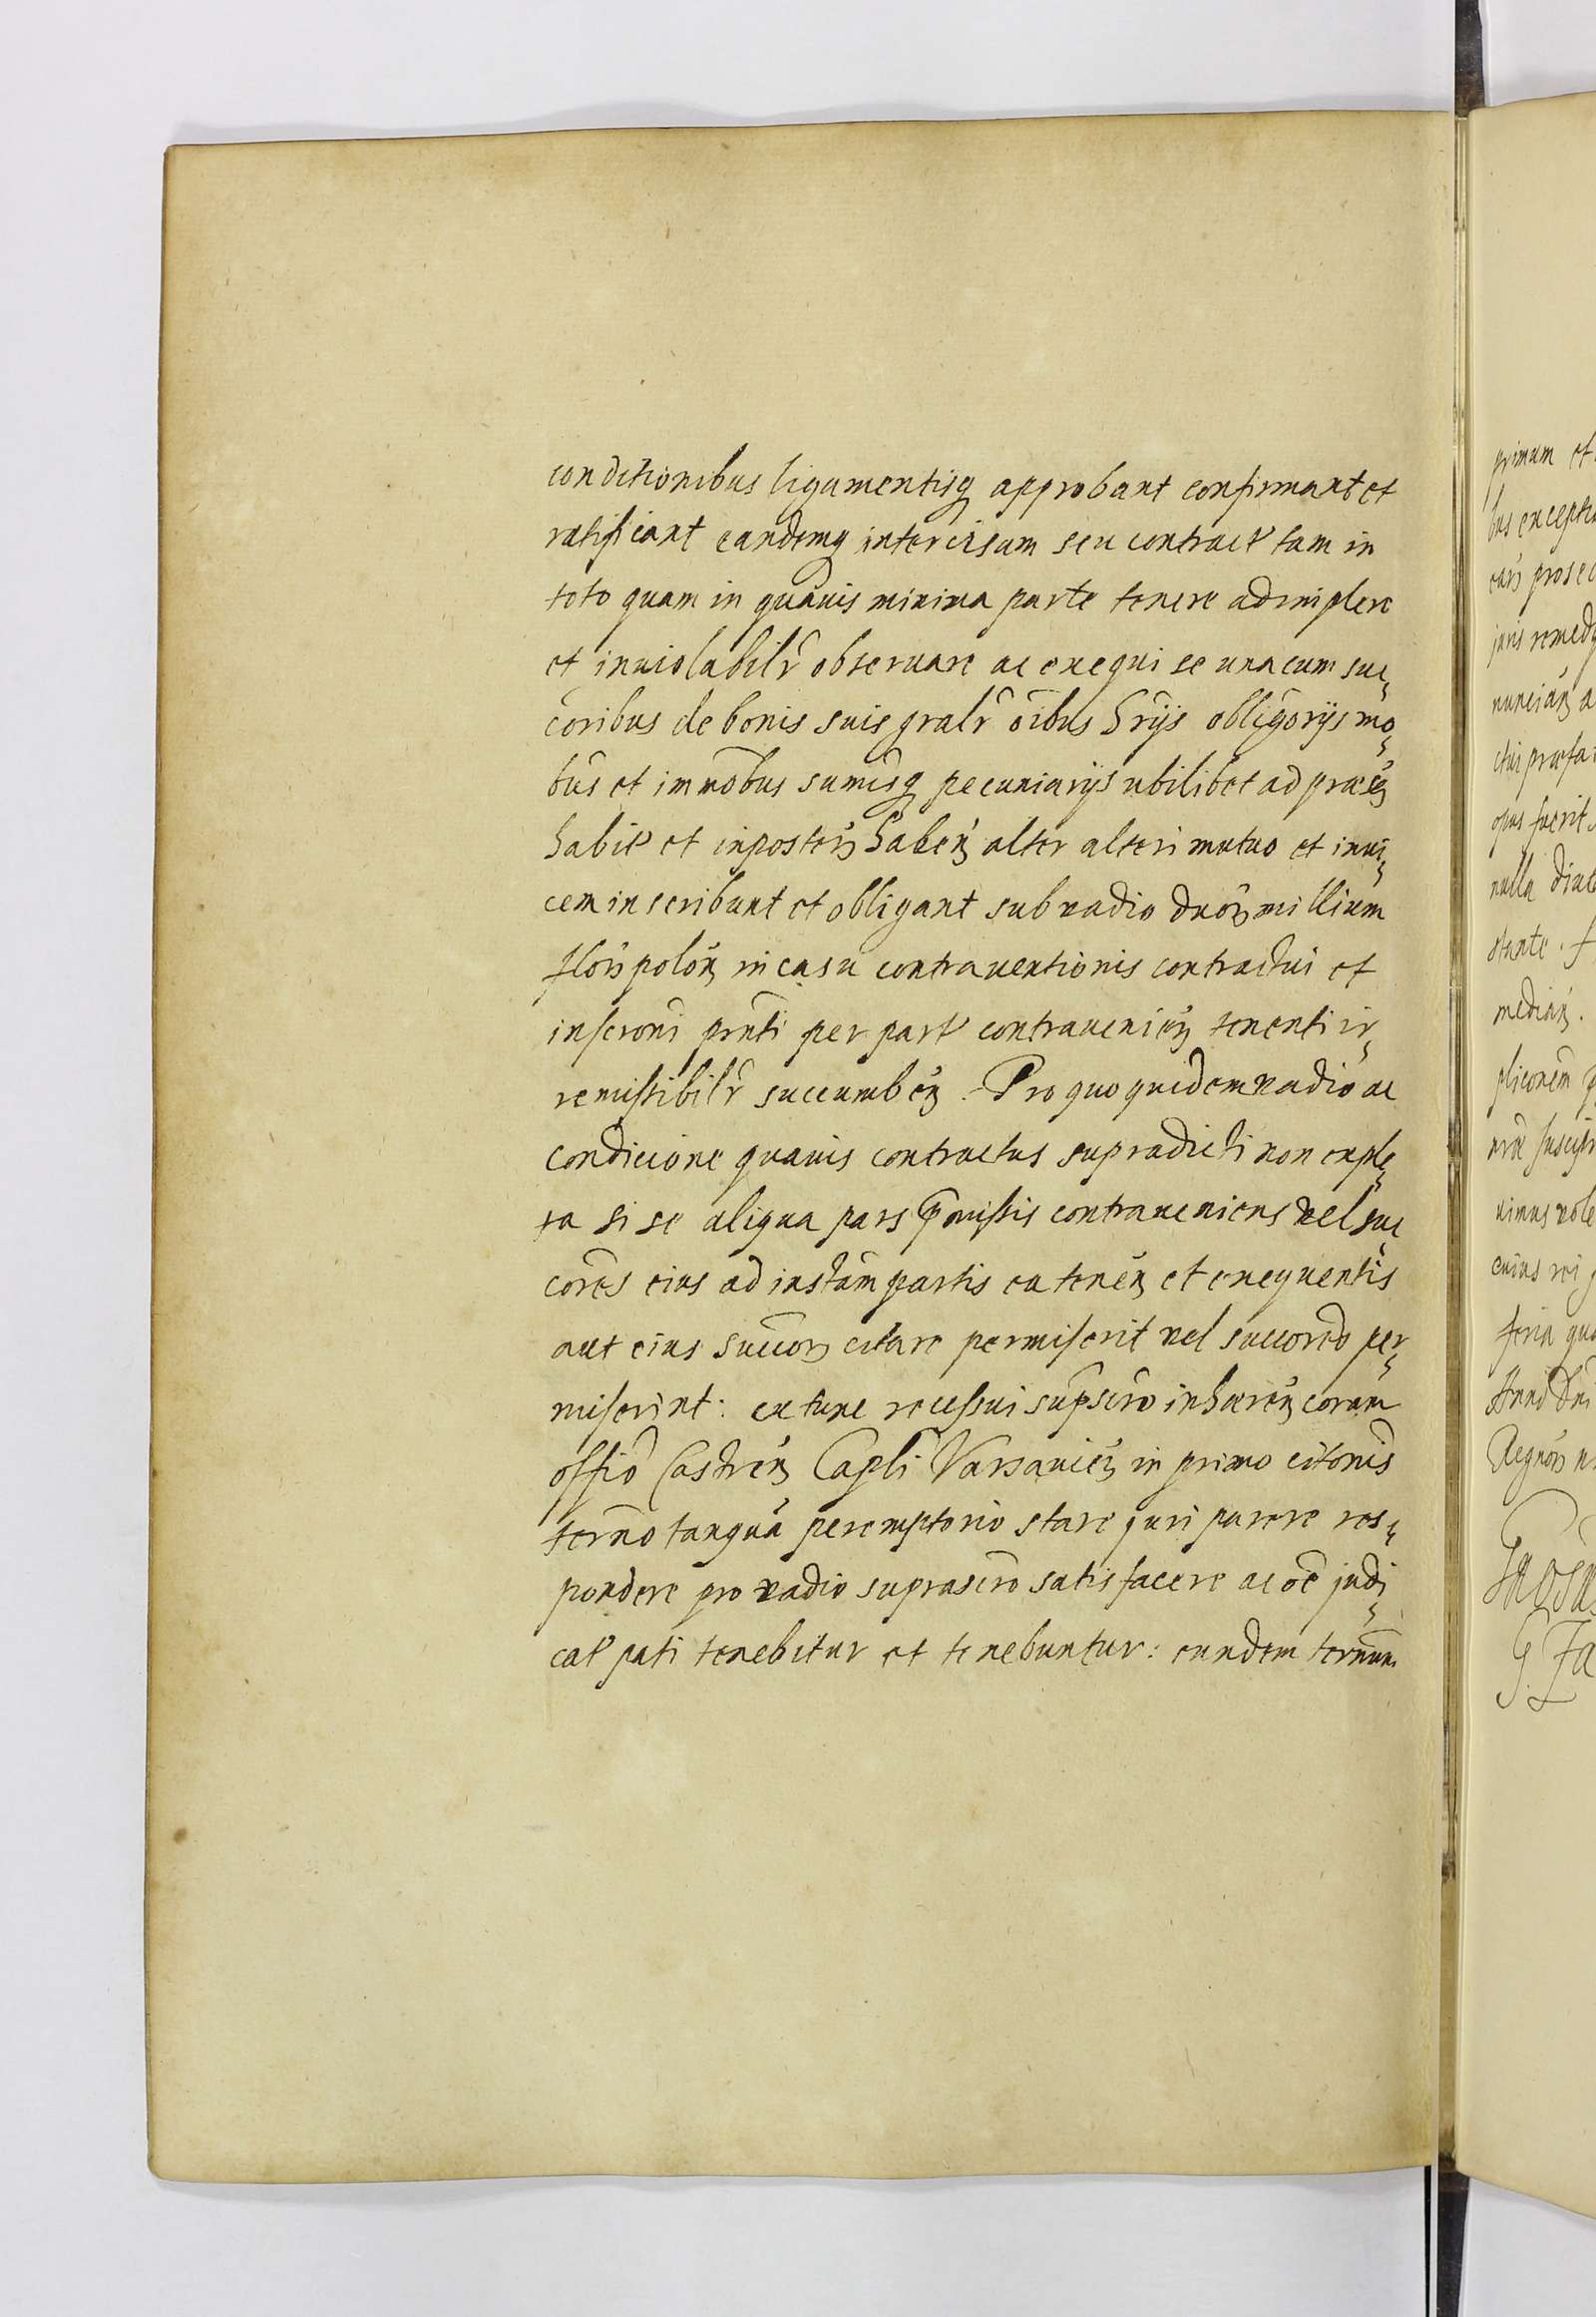 conditionibus ligamentisq approbant confirmant et
ratificant eandemq intercisam seu contract tam in
toto quam in quauis minima parte tenere adimplere
et inuiolabilr obseruare ac exequi se unacum suc¬
coribus de bonis suis gralr oibus hrijs obligorijs mo¬
bus et immobus sumisq pecuniarijs ubilibet ad præns
habit et inposter haben alter alteri mutuo et inui¬
cem inscribunt et obligant sub vadio duor millium
flor polon in casu contrauentionis contractui et
inscroni prnti per part contrauenien tenenti ir¬
remissibilr succumben. Pro quo quidem vadio ac
condicione quauis contractus supradicti non exple¬
ta si se aliqua pars pmissis contraueniens vel suc¬
cores eius ad instam partis ea tenen et exequentis
aut eius succor citare permiserit vel succores per¬
miserint: ex tunc recessui supscro inhæren coram
offio Castren Capli Varsauien in primo citonis
termo tanqua peremptorio stare juri parere res¬
pondere pro vadio suprascro satisfacere ac oe judi¬
cat pati tenebitur et tenebuntur: eundem termum
primum et
bus excepti
juris remed
opus fuerit
nulla
stante.
median.
cuius rei
feria qu
Anno Dni